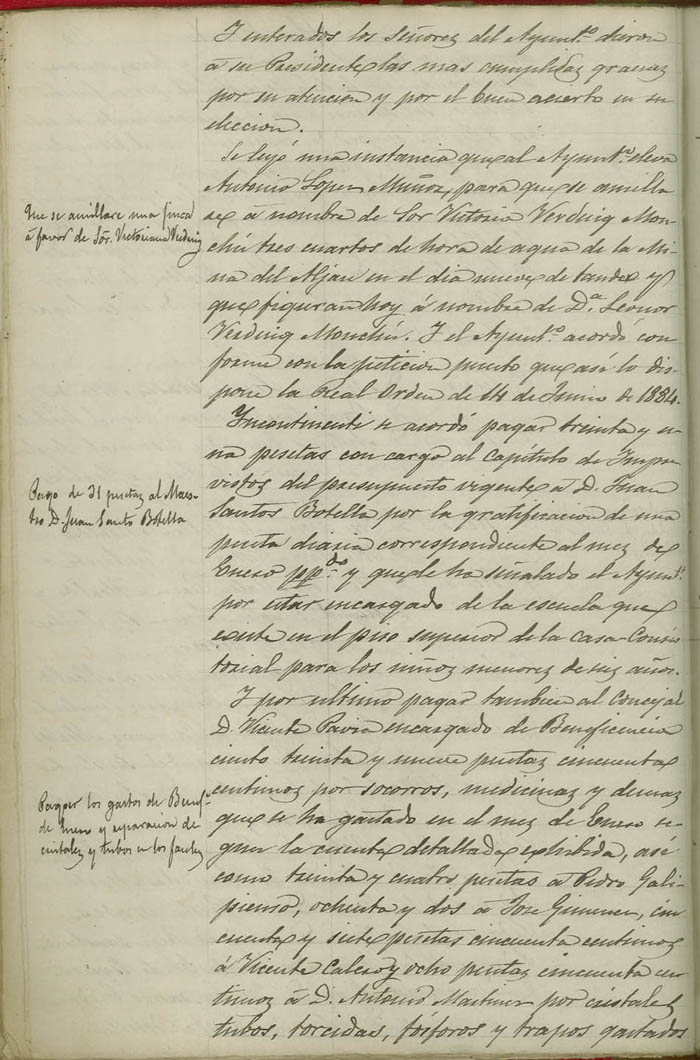 Y enterados los Señores del Ayunt.º dieron
á su Presidente las mas cumplidas gracias
por su atencion y por el buen acierto en su
eleccion.
Se leyó una instancia que al Ayunt.º eleva
Antonio Lopez Muñoz, para que se amilla
re á nombre de Sor Victoria Verdug Mon-
chú tres cuartos de hora de agua de la Mi-
na del Aljau en el dia nueve de tanda y
que figuran hoy á nombre de D.ª Leonor
Verdug Monchú. Y el Ayunt.º acordó con
forme con la peticion puesto que asi lo dis-
pone la Real Orden de 14 de Junio de 1884.
Incontinenti se acordó pagar treinta y u-
na pesetas con cargo al Capítulo de Impre
vistos del presupuesto vigente á D. Juan
Santos Botella por la gratificacion de una
peseta diaria correspondiente al mes de
Enero pp.do y que le ha señalado el Ayunt.º
por estar encargado de la escuela que
existe en el piso superior de la casa Consis
torial para los niños menores de seis años.
Y por ultimo pagar tambien al Concejal
D. Vicente Pavia encargado de Beneficencia
ciento treinta y nueve pesetas cincuenta
centimos por socorros, medicinas y demas
que se ha gastado en el mes de Enero se-
gun la cuenta detallada exhibida, asi
como treinta y cuatro pesetas á Pedro Gali-
pienso, ochenta y dos á Jose Gimenez, cin
cuenta y siete pesetas cincuenta centimos
á Vicente Calero y ocho pesetas cincuenta cen
timos á D. Antonio Martinez por cristales
tubos, torcidas, fósforos y trapos gastados
Que se amillare una finca
á favor de Sor. Victoriana Verdug
Pago de 31 pesetas al Maes-
tro D. Juan Santos Botella
Pagar los gastos de Benef.ª
de Enero y reparacion de
cristales y tubos en los faroles